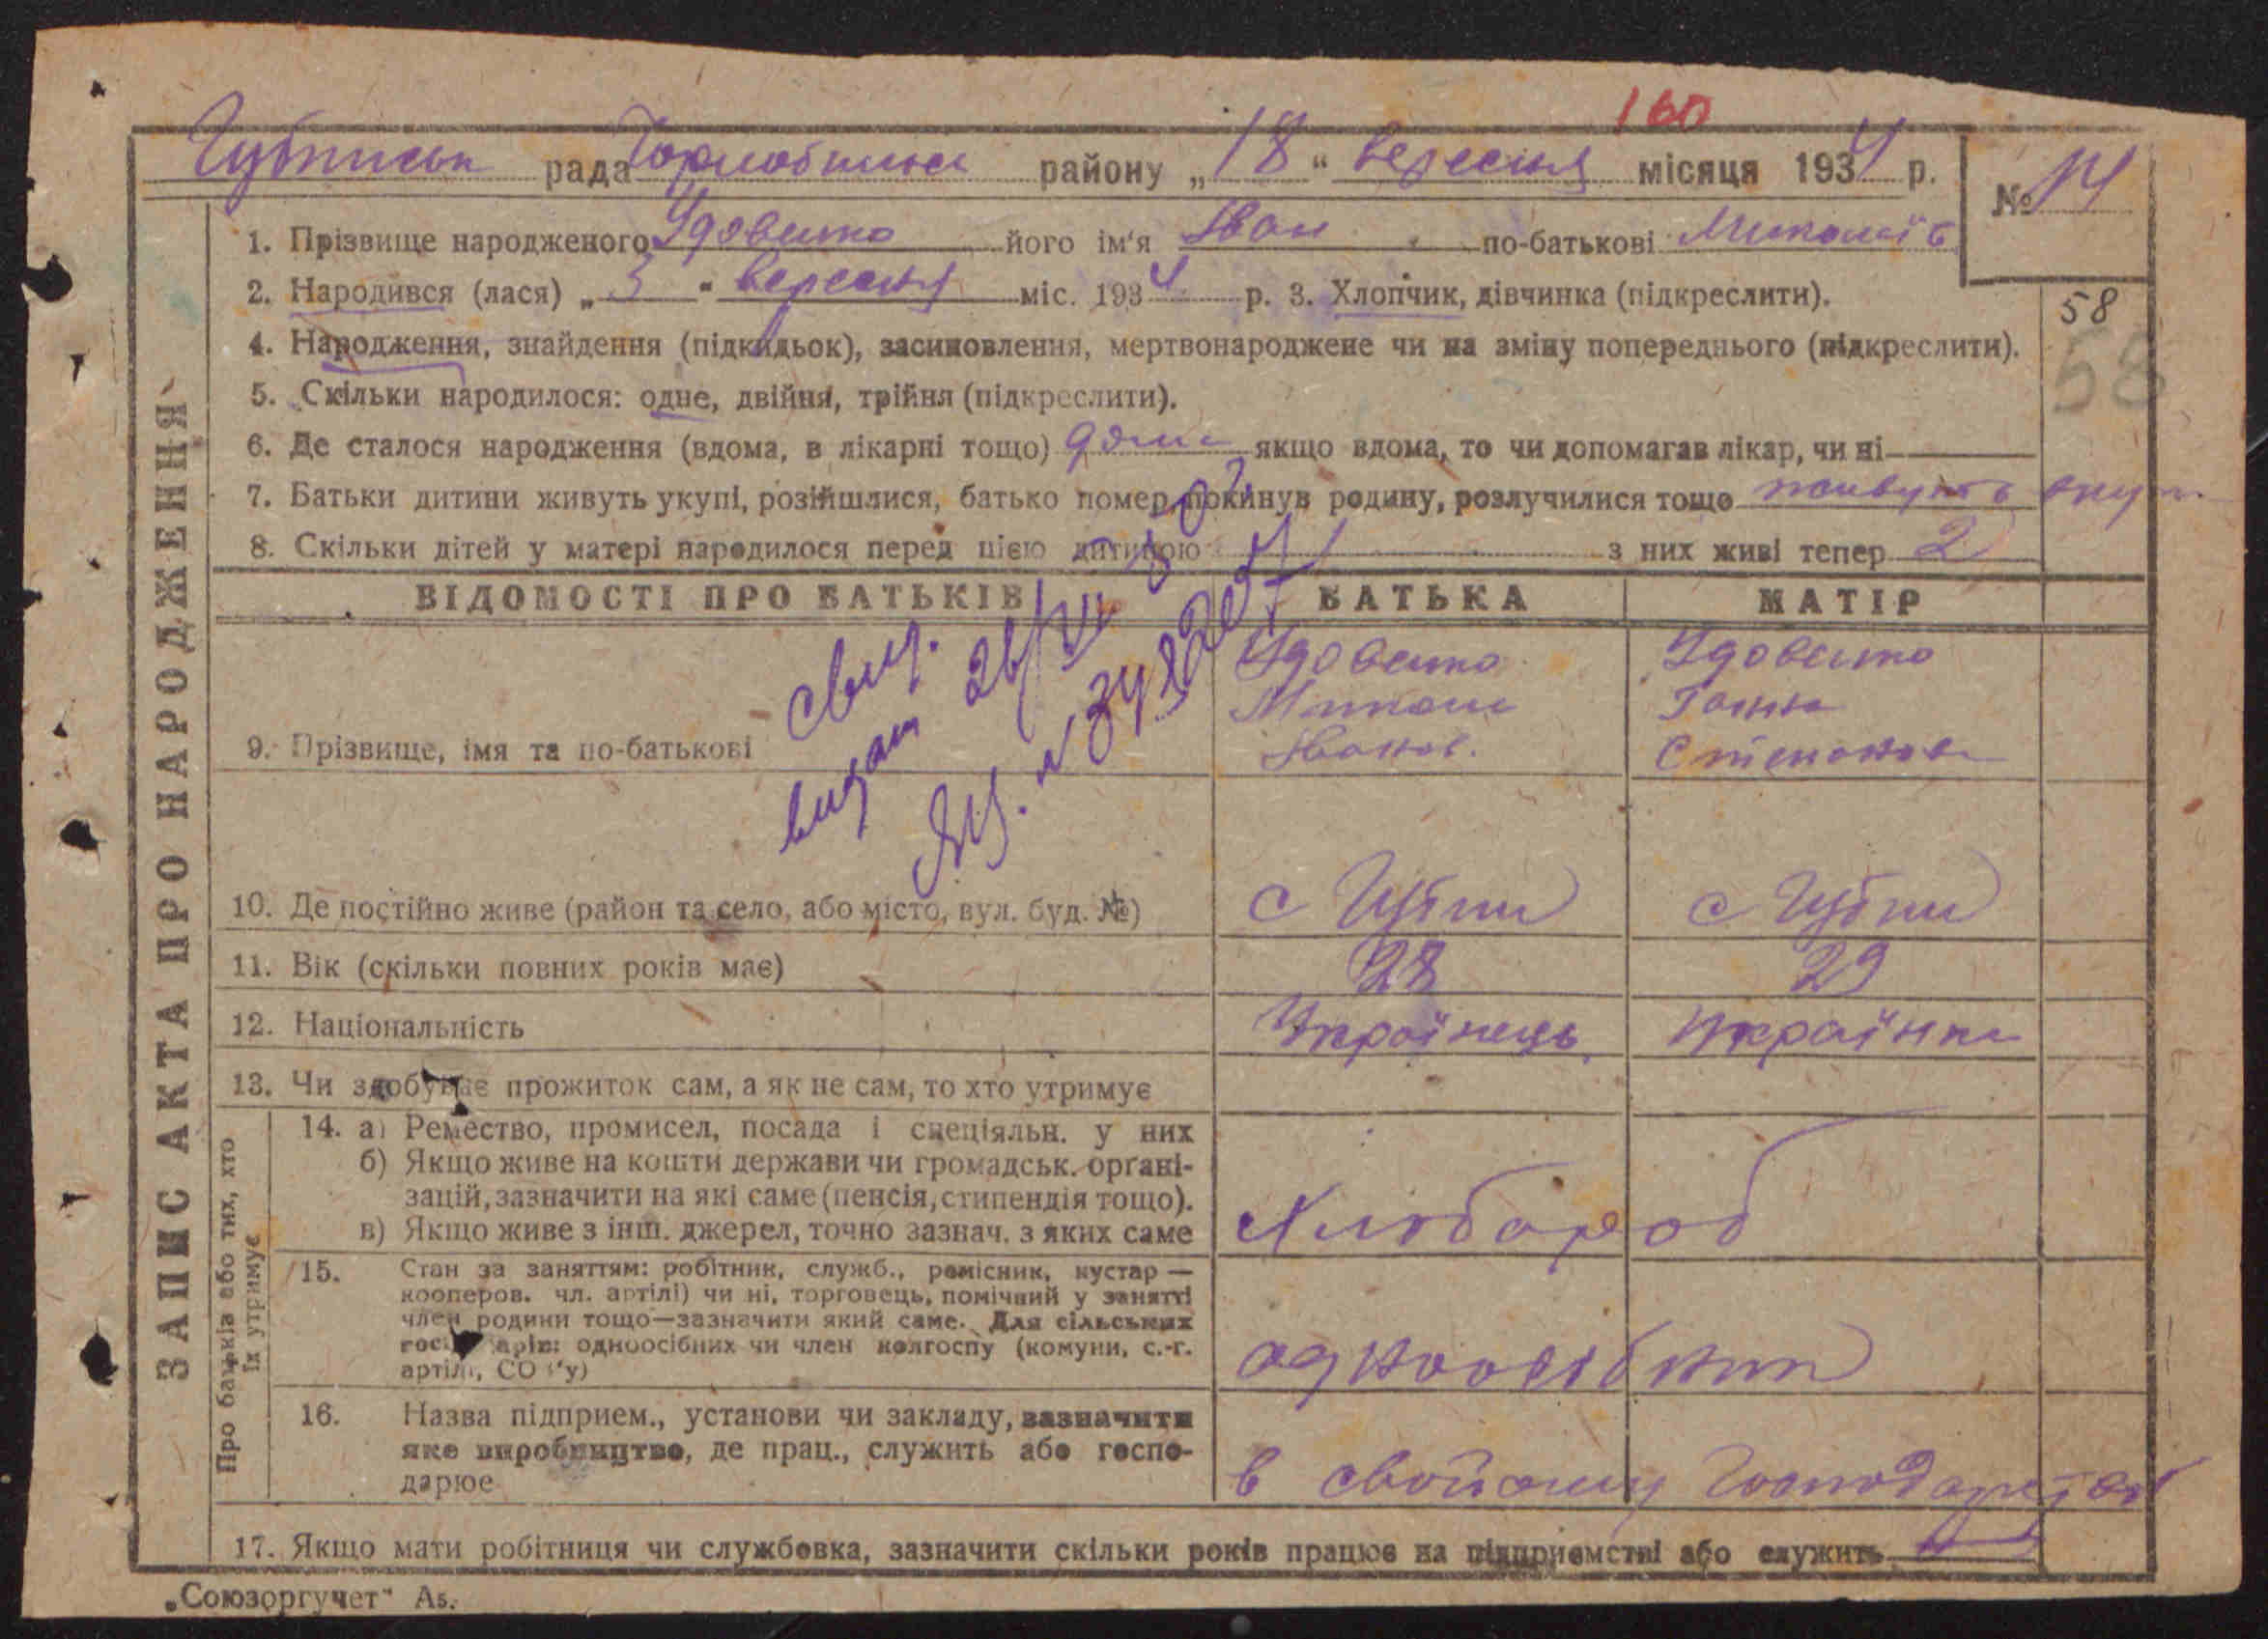 160
Губписьк рада Чорнобильс району „18“ вересня місяця 1934 р.
№ 14
1. Прізвище народженого Удовенко його ім'я Іван по-батькові Миколаїв
2. Народився (лася) „3“ вересня міс. 1934 р. 3. Хлопчик, дівчинка (підкреслити).
58
4. Народження, знайдення (підкидьок), засиновлення, мертвонароджене чи на зміну попереднього (підкреслити).
58
5. Скільки народилося: одне, двійня, трійня (підкреслити).
6. Де сталося народження (вдома, в лікарні тощо) дома якщо вдома, то чи допомагав лікар, чи ні —
7. Батьки дитини живуть укупі, розійшлися, батько помер, покинув родину, розлучилися тощо живуть вкупі
8. Скільки дітей у матері народилося перед цією дитиною з них живі тепер 2
ВІДОМОСТІ ПРО БАТЬКІВ БАТЬКА МАТІР
свид.
видан 26/VII
9. Прізвище, імя та по-батькові
Удовенко
Микола
Іванов.
Удовенко
Ганна
Степанов
10. Де постійно живе (район та село, або місто, вул. буд. №) с Губпи с Губпи
11. Вік (скільки повних років має) 28 29
12. Національність Українець Українка
13. Чи здобуває прожиток сам, а як не сам, то хто утримує
14. а) Ремество, промисел, посада і спеціяльн. у них
б) Якщо живе на кошти держави чи громадськ. органі-
зацій, зазначити на які саме (пенсія, стипендія тощо).
в) Якщо живе з інш. джерел, точно зазнач. з яких саме
Хлібороб
15. Стан за заняттям: робітник, служб., ремісник, кустар —
кооперов. чл. артілі) чи ні, торговець, помічний у занятті
член родини тощо—зазначити який саме. Для сільських
господарів: одноосібних чи член колгоспу (комуни, с.-г.
артілі, СОЗ'у)
одноосібник
16. Назва підприєм., установи чи закладу, зазначити
яке виробництво, де прац., служить або госпо-
дарює
в свойому господарстві
17. Якщо мати робітниця чи службовка, зазначити скільки років працює на підприємстві або служить
ЗАПИС АКТА ПРО НАРОДЖЕННЯ
Про батьків або тих, хто
їх утримує
„Союзоргучет“ А5.